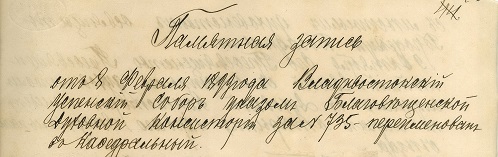 44
Памятная запись
ото 8 Февраля 1899 года Владивостокскій
Успенскій Соборъ указомъ Благовѣщенской
Духовной Консисторіи за № 735 переименован
въ Кафедральный.